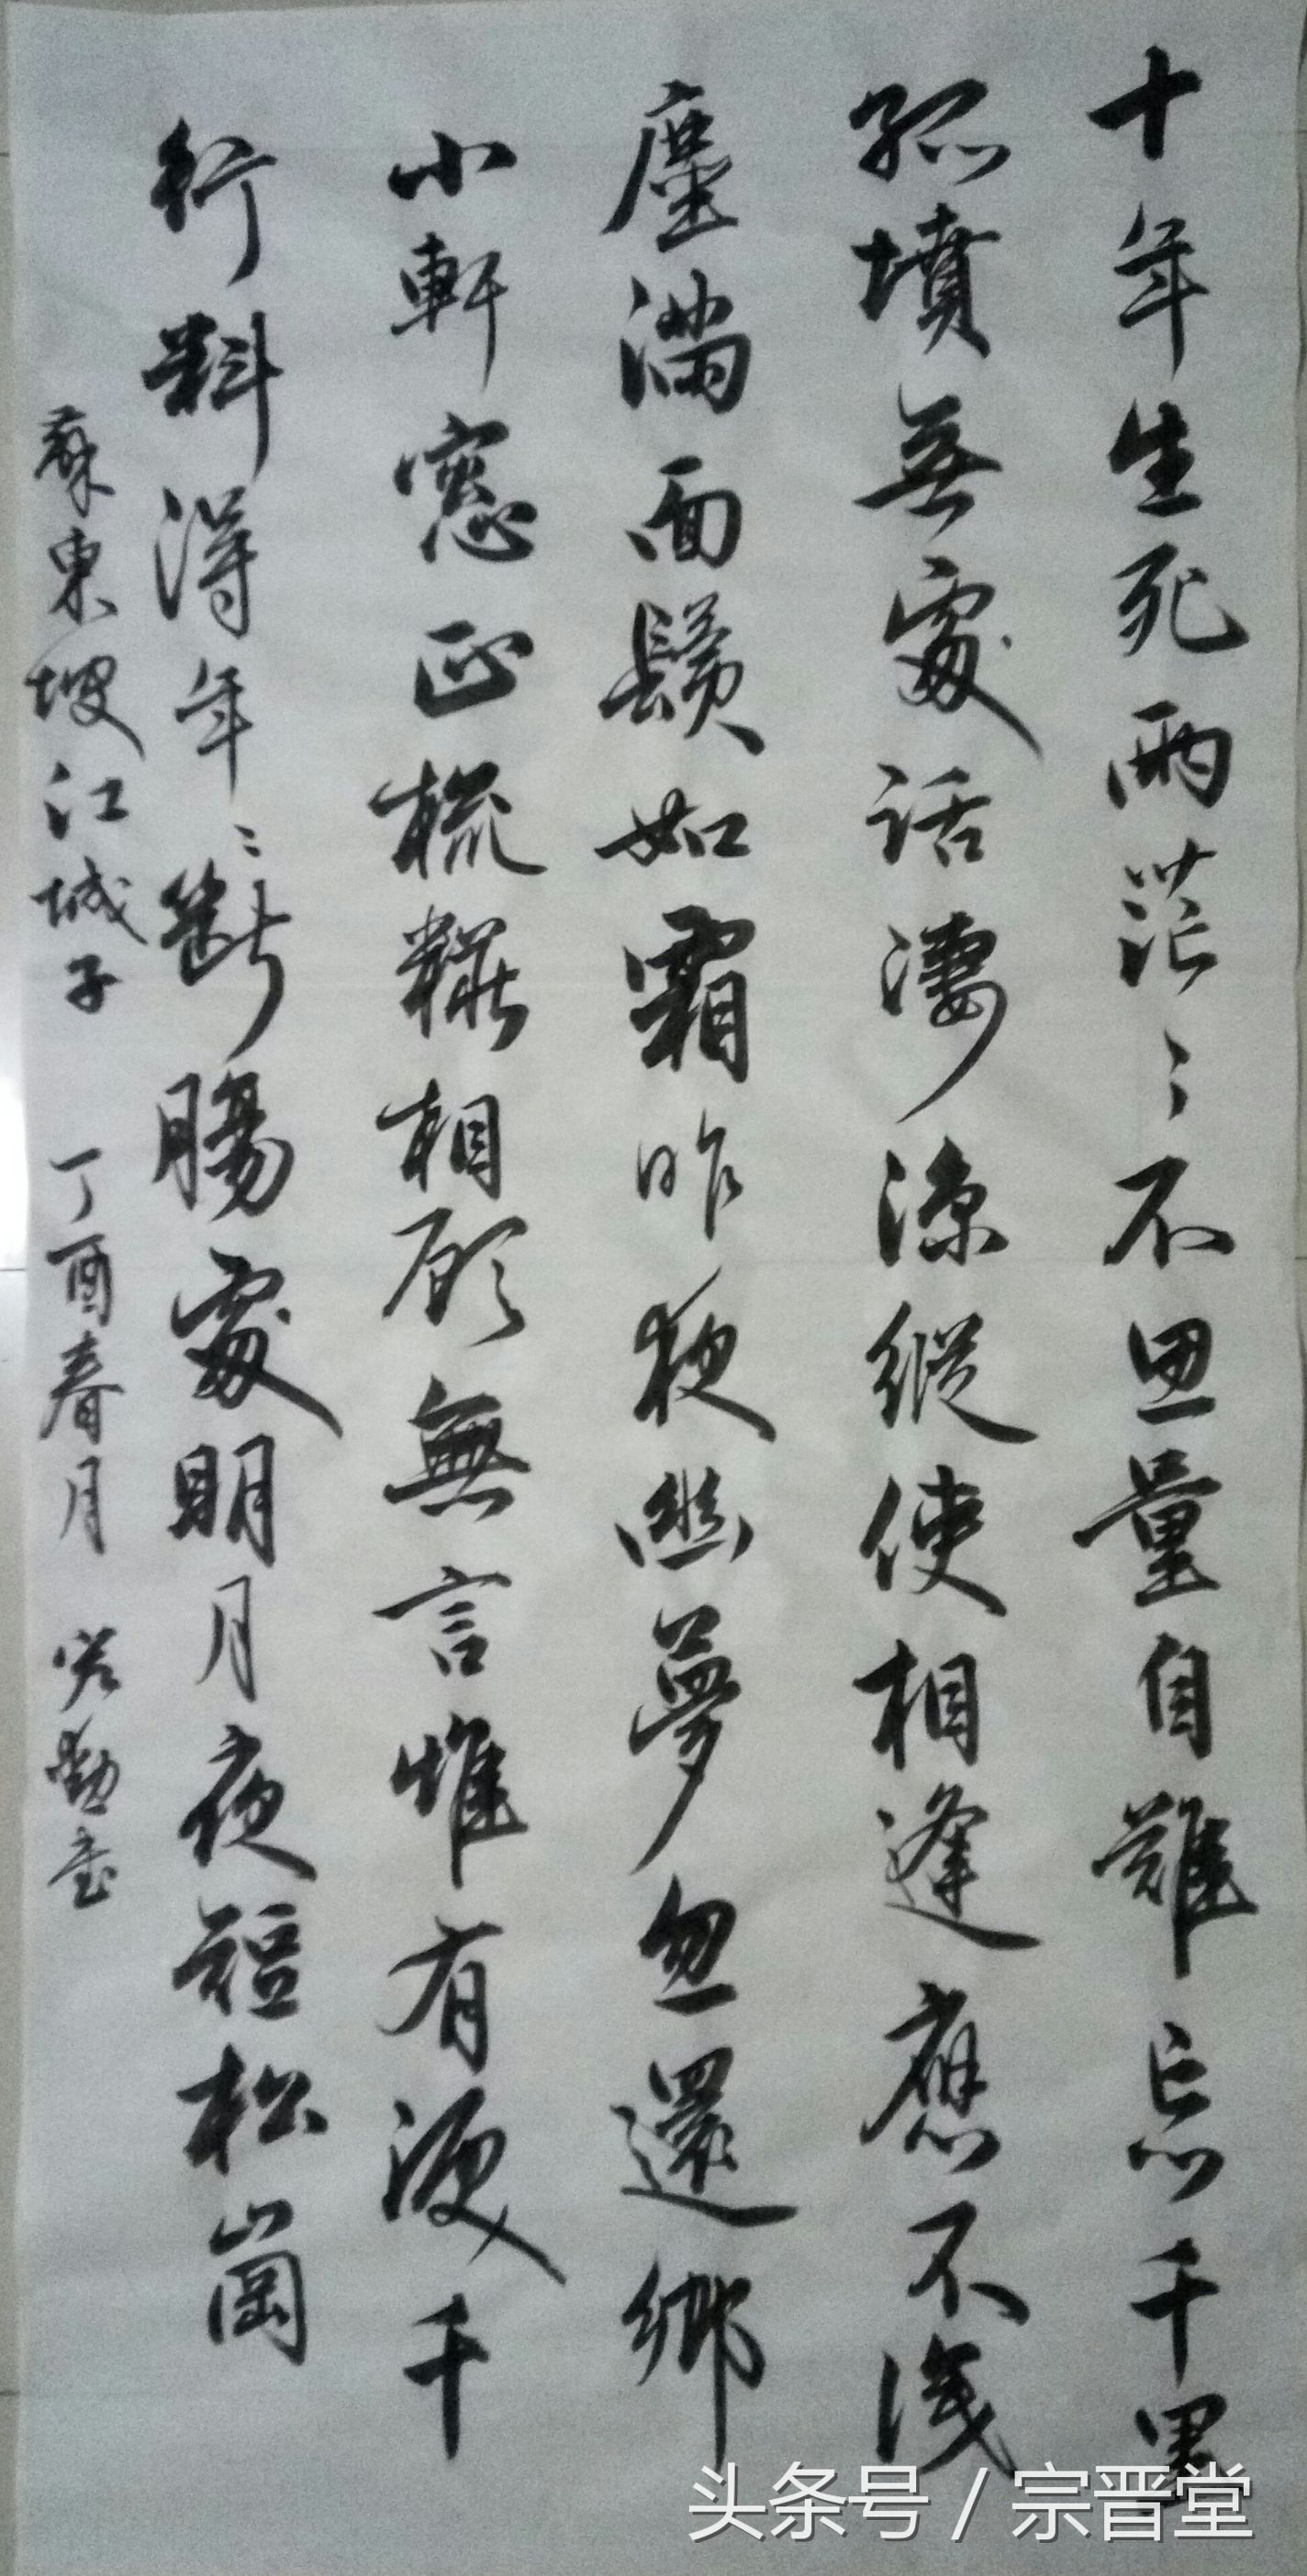 十年生死兩茫〻不思量自難忘千里
孤墳無處話淒涼縱使相逢應不識
塵滿面鬢如霜昨夜幽夢忽還鄉
小軒窓正梳糚相顧無言惟有淚千
行料得年〻斷腸處明月夜短松崗
蘇東坡江城子 丁酉春月
头条号 / 宗晋堂